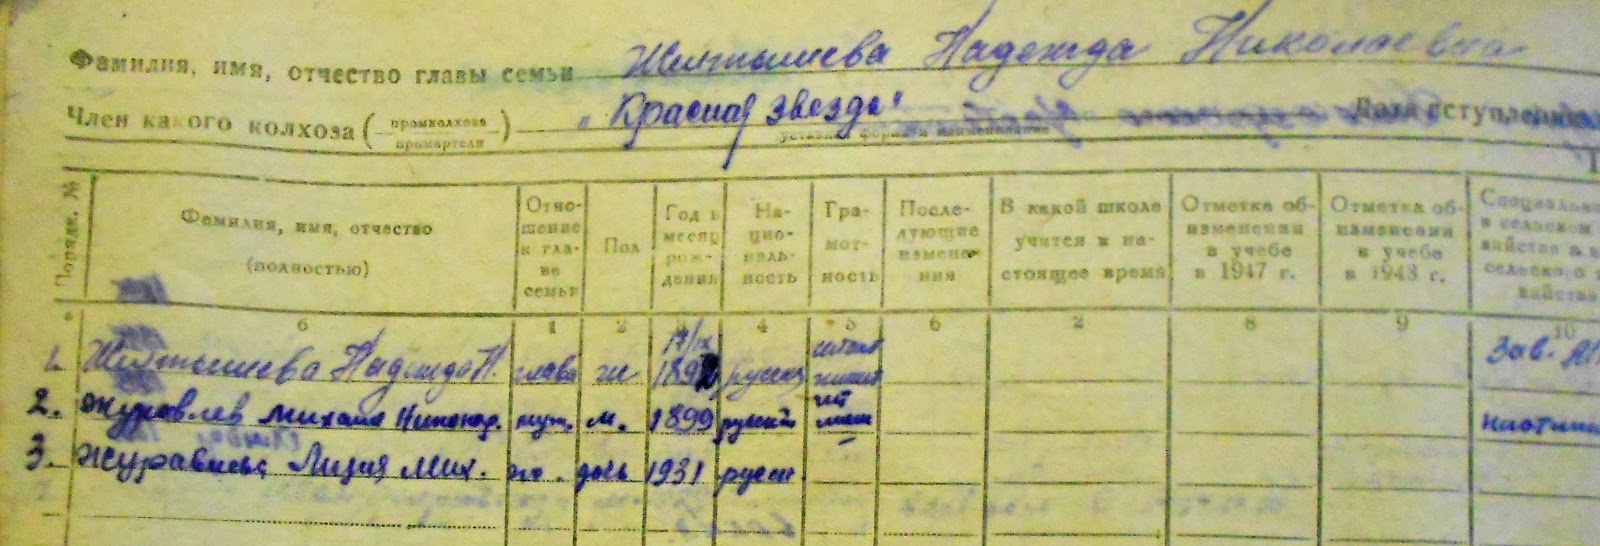 Фамилия, имя, отчество главы семьи Желтышева Надежда Николаевна
Член какого колхоза (промколхоза промартели) "Красная звезда" Дата вступления
устава форма и наименование
Порядк. №
Фамилия, имя, отчество (полностью)
Отношение к главе семьи
Пол
Год и месяц рождения
Национальность
Грамотность
Последующие изменения
В какой школе учится в настоящее время
Отметка об изменении в учебе в 1947 г.
Отметка об изменении в учебе в 1948 г.
Специально в сельском
а б 1 2 3 4 5 6 2 8 9 10
1. Желтышева Надежда Н. глава ж 17/IX 189 русская Зав.
2. Журавлев Михаил Никонор. муж. м. 1899 русский
3. Журавлева Лидия Мих. его дочь 1931 русск